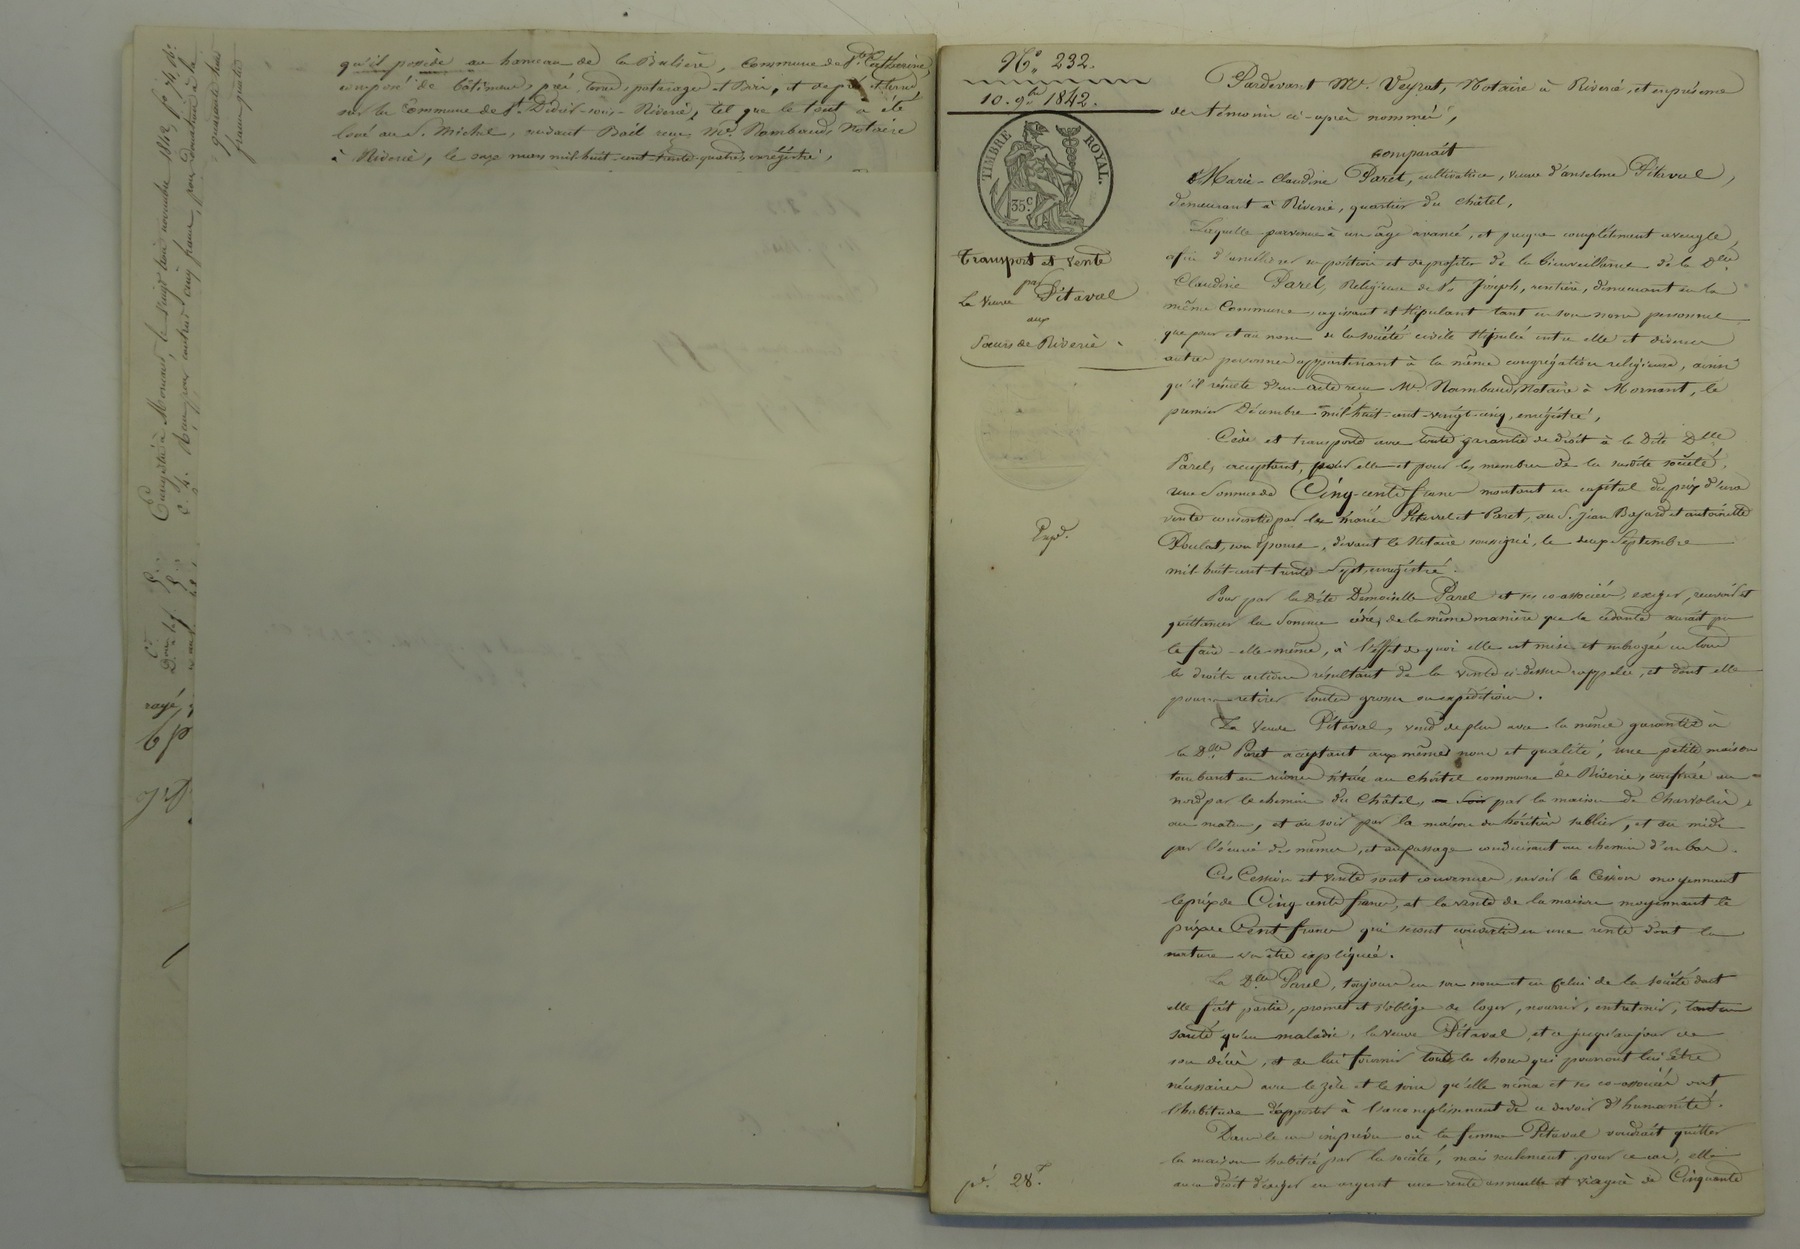 qu'il possède au hameau de la Balière, Commune de Ste Catherine,
composé de bâtiments, pré, terre, pâturage et Bois, et de pré et terre
sur la Commune de St Didier-sous-Riverie, tel que le tout a été
loué au S. Michel, suivant Bail reçu Me Rambaud, Notaire
à Riverie, le onze mars mil-huit-cent-trente-quatre, enregistré,
Enregistré à Mornant, le vingt trois novembre 1842, fo 74,
quarante huit
francs quatre
rayé,
No 232.
10. 9bre 1842.
TIMBRE ROYAL.
35 c
Transport et Vente
par
la Veuve Pitaval
aux
Soeurs de Riverie
Expd.
pd. 28.
Pardevant Me. Veyrat, Notaire à Riverie, et en présence
des témoins ci-après nommés,
comparait
Marie-Claudine Parel, cultivatrice, veuve d'anselme Pitaval,
demeurant à Riverie, quartier du Châtel,
Laquelle parvenue à un âge avancé, et presque complètement aveugle,
afin d'améliorer sa position et de profiter de la bienveillance de la Dlle
Claudine Parel, Religieuse de St Joseph, rentière, demeurant en la
même Commune, agissant et stipulant tant en son nom personnel
que pour et au nom de la société civile stipulée entre elle et diverses
autres personnes appartenant à la même congrégation religieuse, ainsi
qu'il résulte d'un acte reçu Me Rambaud, Notaire à Mornant, le
premier Décembre mil-huit-cent-vingt-cinq, enregistré,
Cède et transporte avec toute garantie de droit à la dite Dlle
Parel, acceptant, pour elle et pour les membres de la susdite société,
une somme de Cinq-cents francs montant en capital du prix d'une
vente consentie par les mariés Pitaval et Parel, au S. Jean Bajard et antoinette
Poulat, son épouse, devant le Notaire soussigné, le Septembre
mil-huit-cent-trente-Sept, enregistré.
Pour par la dite Demoiselle Parel et ses co-associées, exiger, recevoir et
quittancer la somme cédée, de la même manière que la cédante aurait pu
le faire elle-même, à l'effet de quoi elle est mise et subrogée en tous
les droits actions résultant de la vente ci-dessus rappelée, et dont elle
pourra retirer toutes grosses ou expéditions.
La Veuve Pitaval, vend de plus avec la même garantie à
la Dlle Parel acceptant aux mêmes noms et qualité, une petite maison
tombant en ruines située au châtel commune de Riverie, confinée au
nord par le chemin du Châtel, par la maison de
au matin, et au soir par la maison des héritiers, et au midi
par l'écurie des mêmes, et au passage conduisant au chemin d'en bas.
Ces Cession et vente sont convenues, savoir la Cession moyennant
le prix de Cinq cents francs, et la vente de la maison moyennant le
prix de Cent francs qui seront convertis en une rente dont la
nature va être expliquée.
La Dlle Parel, toujours en son nom et en celui de la société dont
elle fait partie, promet et s'oblige de loger, nourrir, entretenir, tant en
santé qu'en maladie, la veuve Pitaval, et ce jusqu'au jour de
son décès, et de lui fournir toutes les choses qui pourront lui être
nécessaires avec le zèle et le soin qu'elle même et ses co-associées ont
l'habitude d'apporter à l'accomplissement de ce devoir d'humanité.
Dans le cas imprévu où la femme Pitaval voudrait quitter
la maison habitée par la société, mais seulement pour ce cas, elle
aura droit d'exiger en argent une rente annuelle et viagère de Cinquante